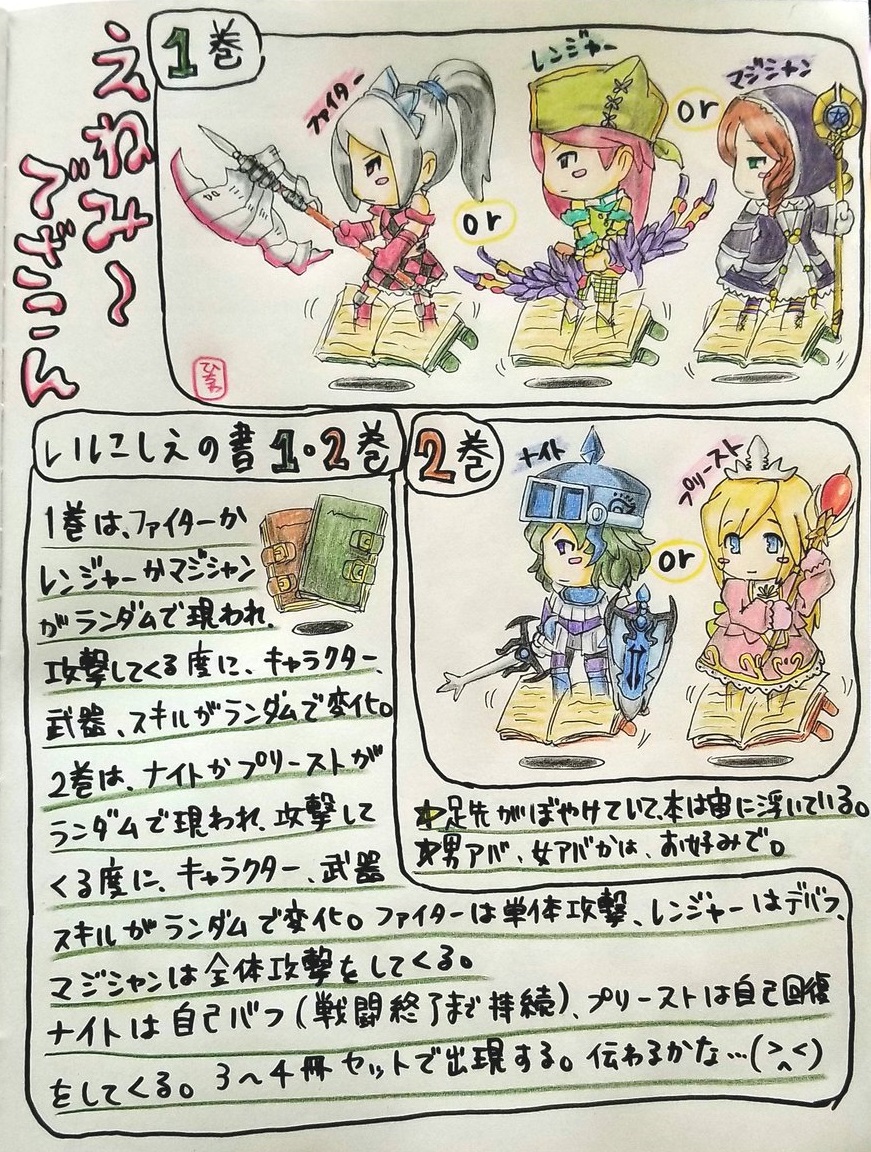 えねみ〜
でざこん
1巻
ファイター
or
レンジャー
or
マジシャン
いにしえの書1・2巻
1巻は、ファイターか
レンジャーかマジシャン
がランダムで現われ、
攻撃してくる度に、キャラクター、
武器、スキルがランダムで変化。
2巻は、ナイトかプリーストが
ランダムで現われ、攻撃して
くる度に、キャラクター、武器
スキルがランダムで変化。ファイターは単体攻撃、レンジャーはデバフ、
マジシャンは全体攻撃をしてくる。
ナイトは自己バフ(戦闘終了まで持続)、プリーストは自己回復
をしてくる。3〜4冊セットで出現する。伝わるかな…(>^<)
2巻
ナイト
or
プリースト
★足先がぼやけていて、本は宙に浮いている。
★男アバ、女アバかは、お好みで。